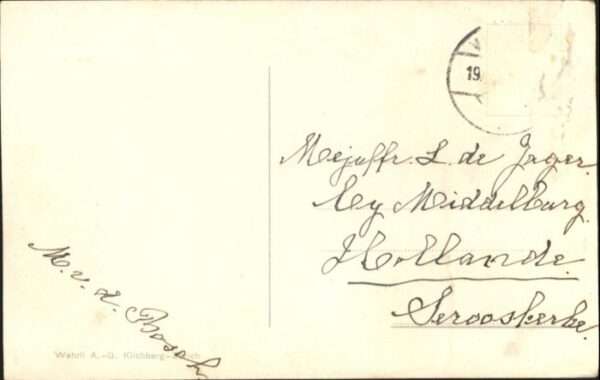 19.
Mejuffr. L. de Jager.
by Middelburg.
Hollande.
Serooskerke.
M. v. d. Bosch
Wehrli A.-G. Kilchberg